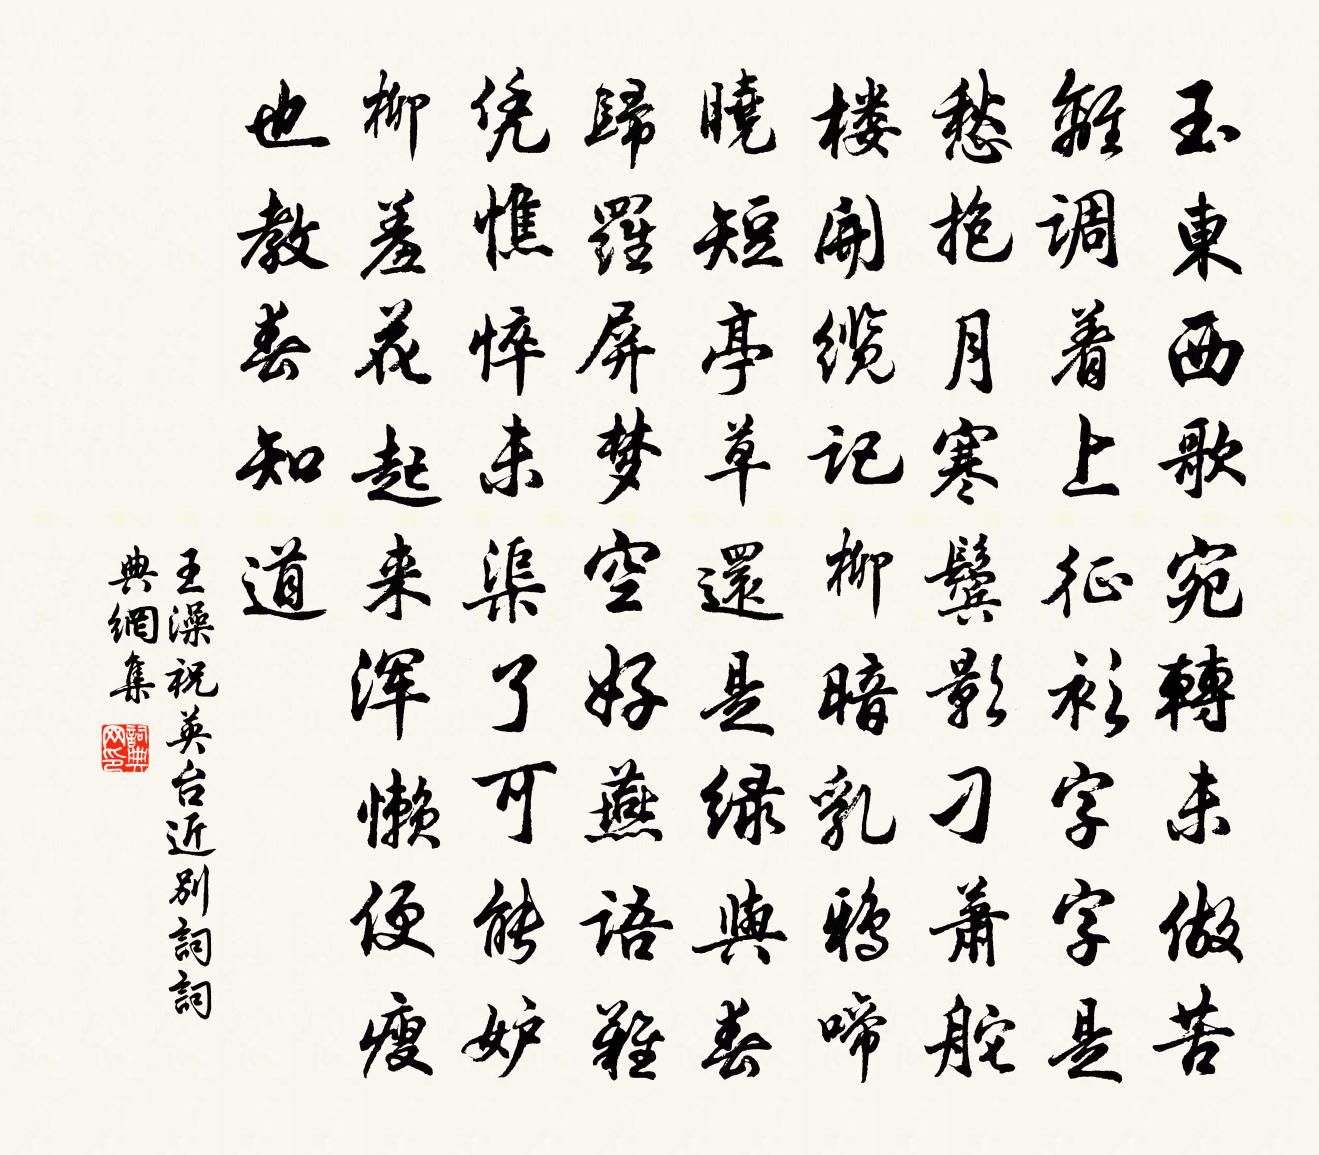 玉東西歌宛轉未做苦
離调着上征衫字字是
愁抱月寒鬓影刁萧舵
楼開缆记柳暗乳鸦啼
曉短亭草還是绿與春
歸羅屏梦空好燕语難
凭憔悴未渠了可能妒
柳羞花起来浑懒便瘦
也教春知道
王澡祝英台近別詞詞
典網集
詞典网印